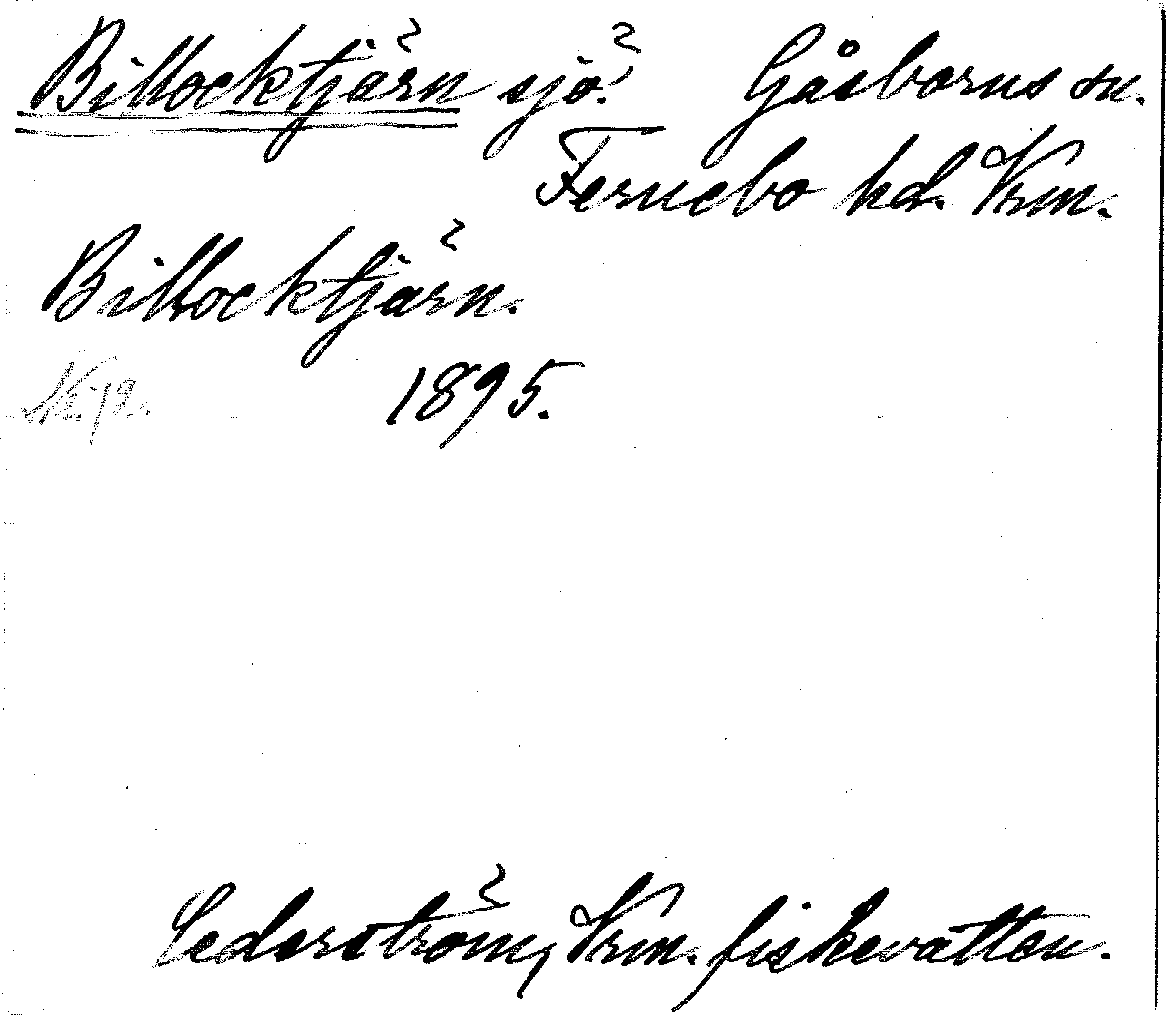 Billocktjärn sjö. Gåsborns sn.
Fernebo hd. Vrm.
Billocktjärn.
1895.
Cederström, Vrm. fiskevatten.